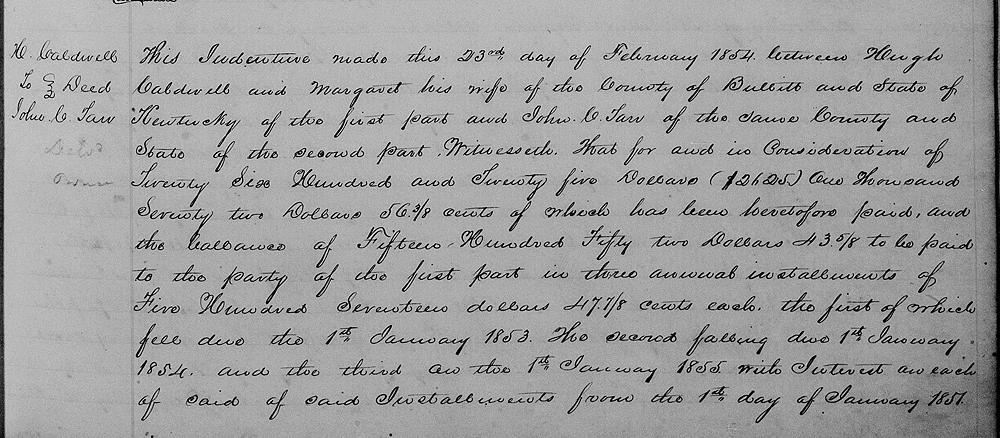 H. Caldwell
To } Deed
John. C. Tarr
This Indenture made this 23rd day of February 1854 between Hugh
Caldwell and Margaret his wife of the County of Bullitt and State of
Kentucky of the first part and John. C. Tarr of the same County and
State of the second part. Witnesseth. That for and in Consideration of
Twenty Six Hundred and Twenty five Dollars ($2625) One Thousand
Seventy two Dollars 56 3/8 cents of which has been heretofore paid, and
the ballance of Fifteen Hundred Fifty two Dollars 43 5/8 to be paid
to the party of the first part in three annual installments of
Five Hundred Seventeen dollars 47 7/8 cents each. the first of which
fell due the 1st January 1853. The second falling due 1st January
1854. and the third on the 1st January 1855 with Interest on each
of said of said Installments from the 1st day of January 1851.